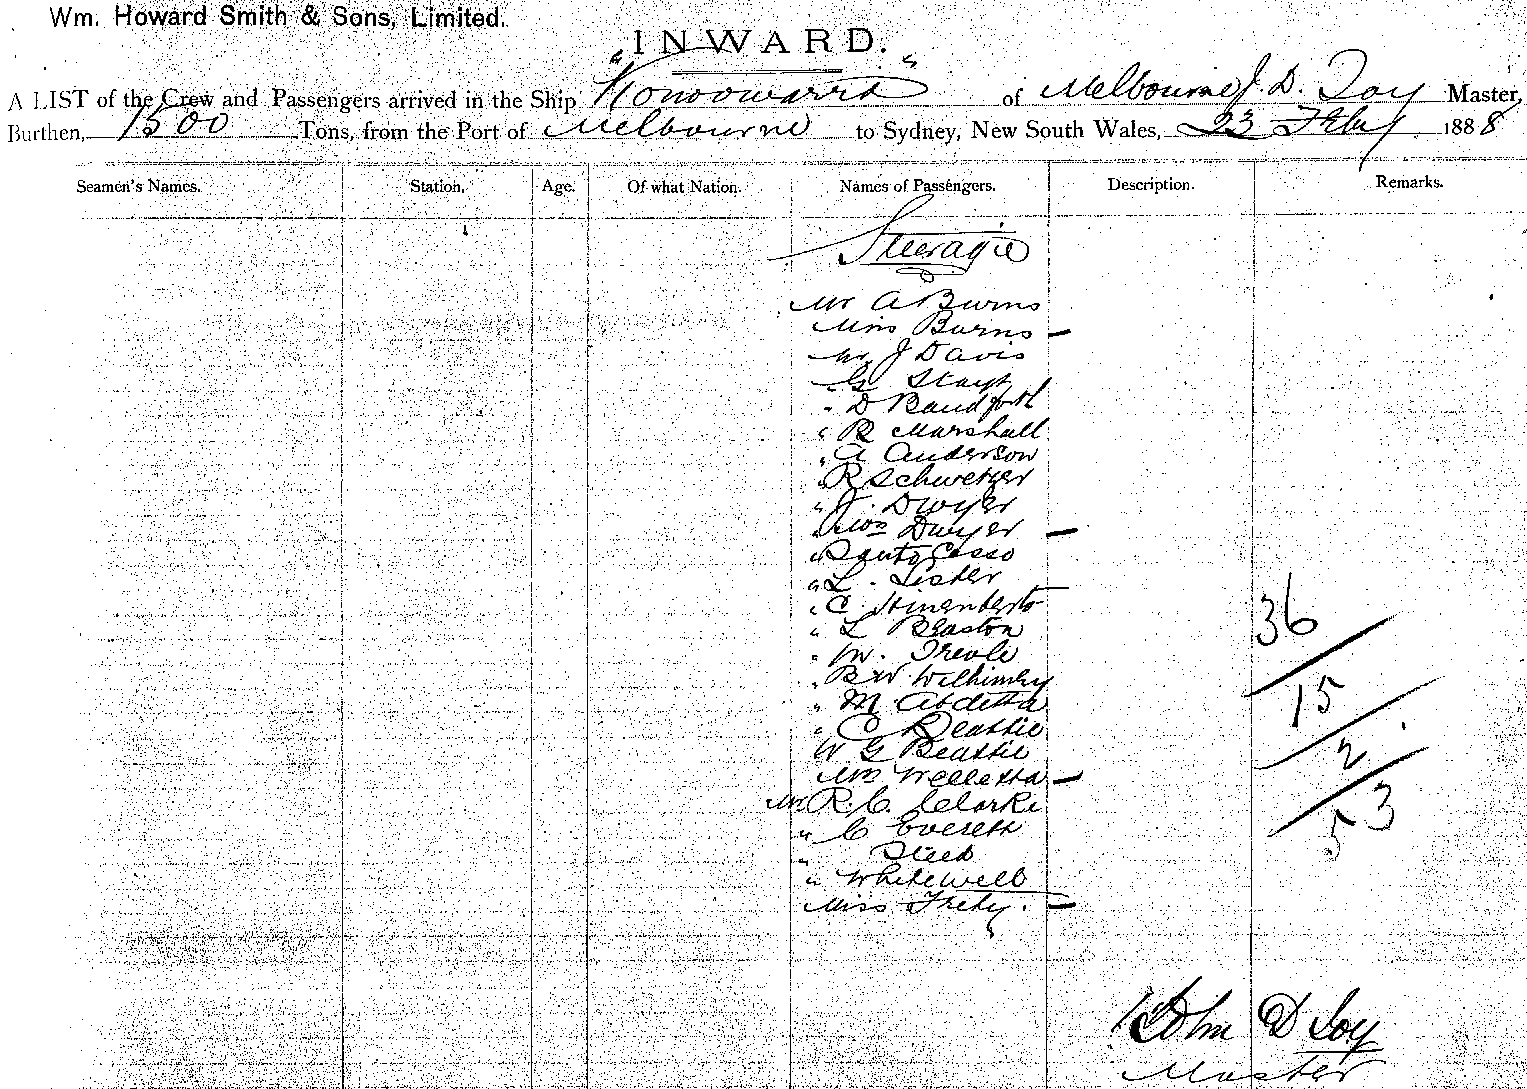 Wm. Howard Smith & Sons, Limited.
INWARD.
A LIST of the Crew and Passengers arrived in the Ship "Konoowarra" of Melbourne, J. D. Loy Master,
Burthen, 1500 Tons, from the Port of Melbourne to Sydney, New South Wales, 23 Feby 1888
Seamen's Names. Station. Age. Of what Nation. Names of Passengers. Description. Remarks.
Steerage
Mr A Burns
Miss Burns -
Mr J Davis
" G
" D
" R Marshall
" A Anderson
" R
" J. Dwyer
" Mrs Dwyer -
"
" L. Lister
" C
36
" L Beaston
" M.
" B W
15
" M Abdetta
" C Beattie
W G Beattie
2
Mrs -
Mr R. C. Clarke
" C Everett
53
" Steed
" Whitewell
Miss -
John D Loy
Master